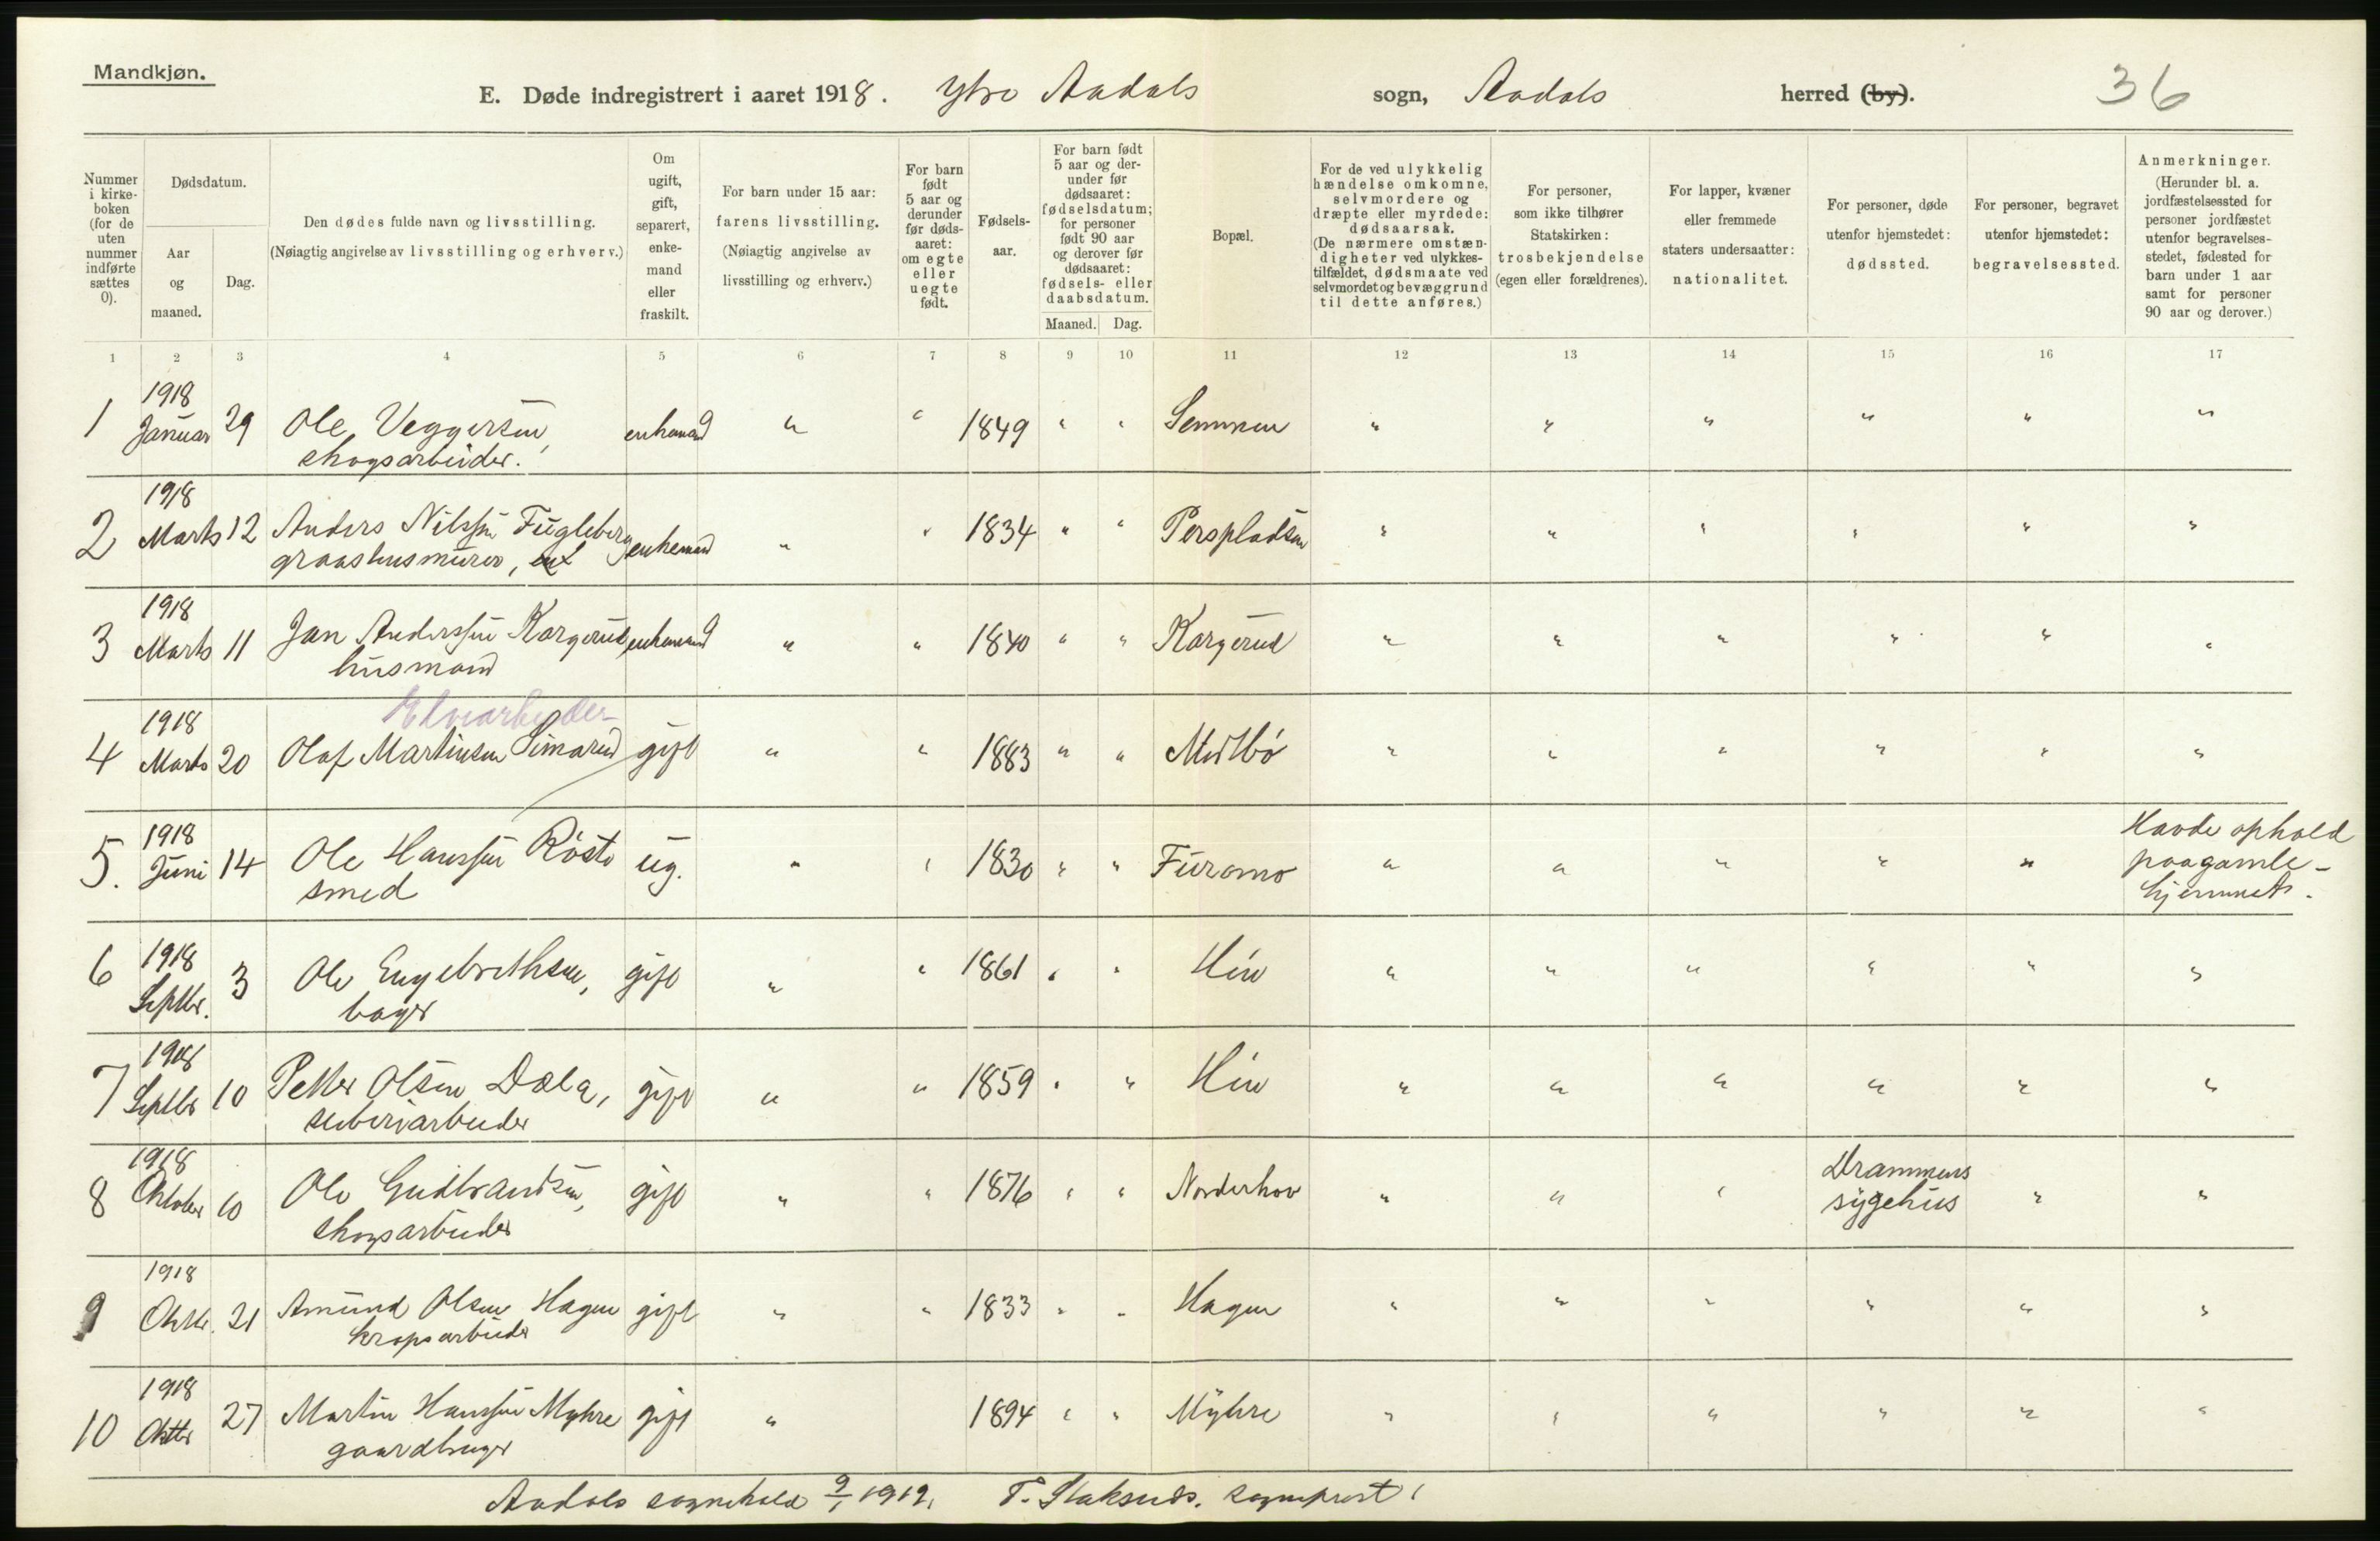 Mandkjøn.
E. Døde indregistrert i aaret 1918. Ytre Aadals sogn, Aadals herred (by). 36
Nummer i kirkeboken (for de uten nummer indførte sættes 0).
Dødsdatum.
Aar og maaned.
Dag.
Den dødes fulde navn og livsstilling.
(Nøiagtig angivelse av livsstilling og erhverv.)
Om ugift, gift, separert, enkemand eller fraskilt.
For barn under 15 aar: farens livsstilling.
(Nøiagtig angivelse av livsstilling og erhverv.)
For barn født 5 aar og derunder før dødsaaret: om egte eller uegte født.
Fødselsaar.
For barn født 5 aar og derunder før dødsaaret: fødselsdatum; for personer født 90 aar og derover før dødsaaret: fødsels- eller daabsdatum.
Maaned. Dag.
Bopæl.
For de ved ulykkelig hændelse omkomne, selvmordere og dræpte eller myrdede: dødsaarsak.
(De nærmere omstændigheter ved ulykkestilfældet, dødsmaate ved selvmordet og bevæggrund til dette anføres.)
For personer, som ikke tilhører Statskirken: trosbekjendelse (egen eller forældrenes).
For lapper, kvæner eller fremmede staters undersaatter: nationalitet.
For personer, døde utenfor hjemstedet: dødssted.
For personer, begravet utenfor hjemstedet: begravelsessted.
Anmerkninger.
(Herunder bl. a. jordfæstelsessted for personer jordfæstet utenfor begravelsesstedet, fødested for barn under 1 aar samt for personer 90 aar og derover.)
1 2 3 4 5 6 7 8 9 10 11 12 13 14 15 16 17
1918
1 Januar 29 Ole Veggersen, enkemand " " 1849 " " Semmen " " " " " "
skogsarbeider.
1918
2 Marts 12 Anders Nilssen Fugleberg enkemand " " 1834 " " Perspladsen " " " " " "
graastensmurer,
1918
3 Marts 11 Jan Anderssen Kargerud enkemand " " 1840 " " Kargerud " " " " " "
husmand
Elvearbeider
1918
4 Marts 20 Olaf Martinsen Simarud gift " " 1883 " " Medbø " " " " " "
1918
5. Juni 14 Ole Hanssen Røste ug. " " 1830 " " Furumo " " " " " Havde ophold
smed paa gamle-
hjemmet.
1918
6 Septbr. 3 Ole Engebrethsen, gift " " 1861 " " Hen " " " " " "
bager
1918
7 Septbr 10 Petter Olsen Dæla, gift " " 1859 " " Hen " " " " " "
sliberiarbeider
1918
8 Oktober 10 Ole Gudbrandsen, gift " " 1876 " " Norderhov " " " Drammens sygehus " "
skogsarbeider
1918
9 Oktbr. 21 Amund Olsen Hagen gift " " 1833 " " Hagen " " " " " "
kropsarbeider
1918
10 Oktbr 27 Martin Hanssen Myhre gift " 1894 " " Myhre " " " " " "
gaardbruger
Aadals sognekald 9/1 1919. sogneprest